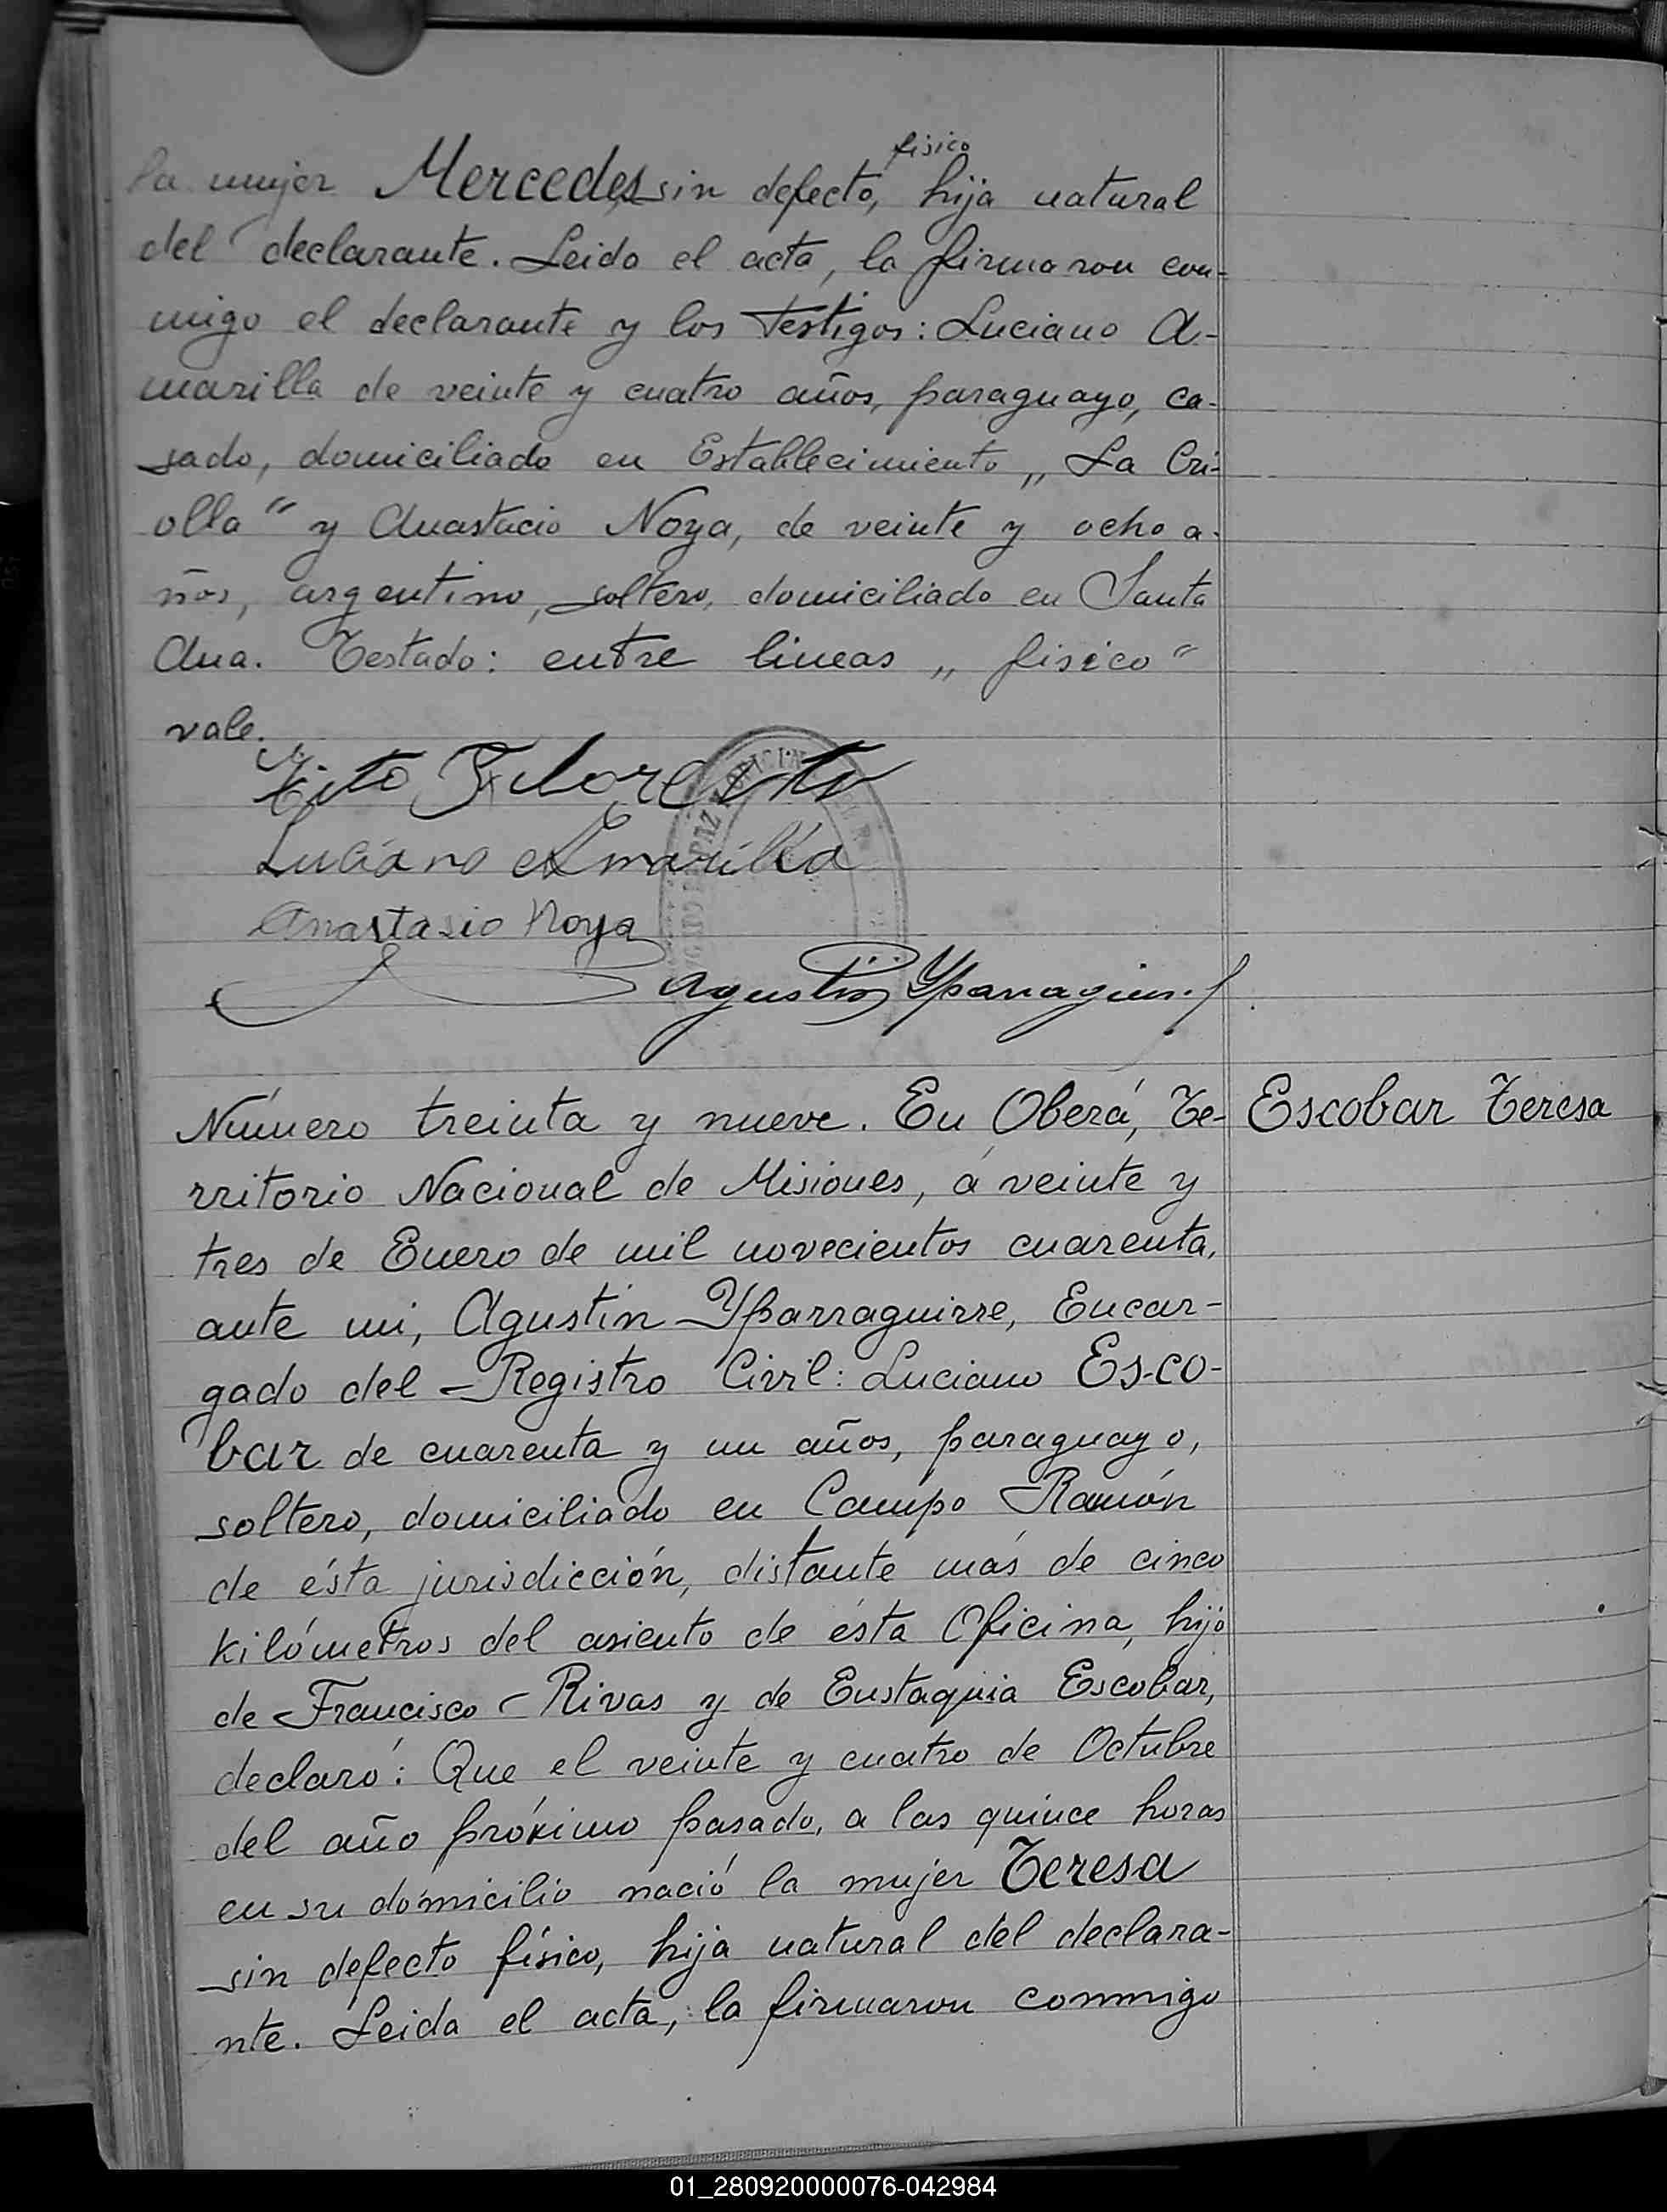 físico
la mujer Mercedes, sin defecto, hija natural
del declarante. Leido el acta, la firmaron con-
migo el declarante y los testigos: Luciano A-
marilla de veinte y cuatro años, paraguayo, ca-
sado, domiciliado en Establecimiento „La Cri-
olla“ y Anastacio Noya, de veinte y ocho a-
ños, argentino, soltero, domiciliado en Santa
Ana. Testado: entre lineas „fisico“
vale.
Tito
Luciano Amarilla
Anastasio Noya
Agustin Yparraguirre
Número treinta y nueve. En Oberá, Te-
Escobar Teresa
rritorio Nacional de Misiones, á veinte y
tres de Enero de mil novecientos cuarenta,
ante mi, Agustín Yparraguirre, Encar-
gado del Registro Civil: Luciano Es-co-
bar de cuarenta y un años, paraguayo,
soltero, domiciliado en Campo Ramón
de ésta jurisdicción, distante más de cinco
kilómetros del asiento de ésta Oficina, hijo
de Francisco Rivas y de Eustaquia Escobar,
declaró: Que el veinte y cuatro de Octubre
del año próximo pasado, a las quince horas
en su domicilio nació la mujer Teresa
sin defecto físico, hija natural del declara-
nte. Leida el acta, la firmaron conmigo
01_280920000076-042984